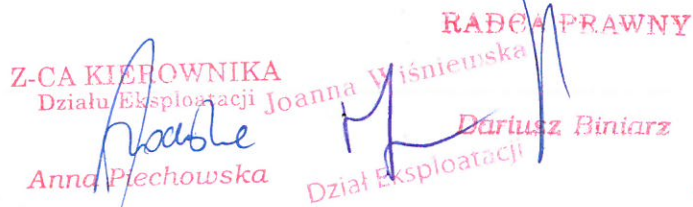 Z-CA KIEROWNIKA
Działu Eksploatacji
Anna Piechowska
Joanna Wiśniewska
Dział Eksploatacji
RADCA PRAWNY
Dariusz Biniarz